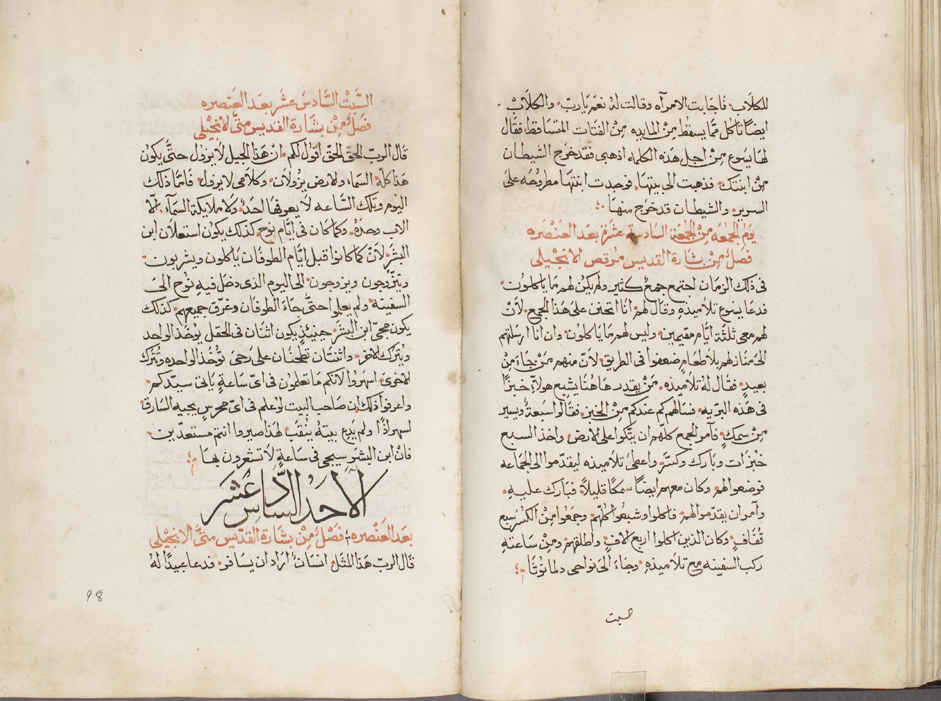 للكلاب فاجابت الامرأه وقالت له نعم يارب والكلاب
ايضًا تاكل مما يسقط من المايده من الفتات المتساقط فقال
لها يسوع من اجل هذه الكلمه اذهبي فقد خرج الشيطان
من ابنتك فذهبت الى بيتها فوجدت ابنتها مطروحه على
السرير والشيطان قد خرج منها
يوم الجمعه من الجمعة السادسة عشره بعد العنصره
فصل من بشارة القديس مرقص الانجيلي
في ذلك الزمان اجتمع جمع كثير ولم يكن لهم ما ياكلون
فدعا يسوع تلاميذه وقال لهم انا اتحنن على هذا الجمع لان
لهم معي ثلثة ايام مقيمين وليس لهم ما ياكلون وان انا ارسلتهم
الى منازلهم بلا طعام ضعفوا في الطريق لان منهم من جاء من
بعيد فقال له تلاميذه من يقدر هاهنا يشبع هولاء خبزًا
في هذه البريه فسالهم كم عندكم من الخبز فقالوا سبعة ويسير
من سمك فامر الجمع كلهم ان يتكوا على الارض واخذ السبع
خبزات وبارك وكسر واعطى تلاميذه ليقدموا الى الجماعه
فوضعوا لهم وكان معهم ايضًا سمكًا قليلًا فبارك عليه
وامر ان يقدموا لهم فاكلوا وشبعوا كلهم وجمعوا من الكسر سبع
قفاف وكان الذين اكلوا اربع الاف واطلقهم ومن ساعته
ركب السفينه مع تلاميذه وجاء الى نواحي دلمانوثا
السبت السادس عشر بعد العنصره
فصل من بشارة القديس متى الانجيلي
قال الرب الحق الحق اقول لكم ان هذا الجيل لا يزول حتى يكون
هذا كله السماء والارض يزولان وكلامي لا يزول فاما ذلك
اليوم وتلك الساعه لا يعرفها احد ولا ملايكة السماء الا
الاب وحده وكما كان في ايام نوح كذلك يكون استعلان ابن
البشر لان كما كانوا قبل ايام الطوفان ياكلون ويشربون
ويتزوجون ويزوجون الى اليوم الذي دخل فيه نوح الى
السفينه ولم يعلموا حتى جاء الطوفان وغرق جميعهم كذلك
يكون مجي ابن البشر حينئذ يكون اثنان في الحقل يوخذ الواحد
ويترك الاخر واثنتان تطحنان على رحى توخذ الواحده وتترك
الاخرى اسهروا لانكم ما تعلمون في اي ساعة ياتي سيدكم
واعرفوا ذلك ان صاحب البيت لو علم في اي محرس يجيه السارق
لسهر اذًا ولم يدع بيته ينقب لهذا صيروا انتم مستعدين
فان ابن البشر سيجي في ساعة لا تشعرون بها
الاحد السادس عشر
بعد العنصره فصل من بشارة القديس متى الانجيلي
قال الرب هذا المثل انسان اراد ان يسافر فدعا عبيدًا له
98